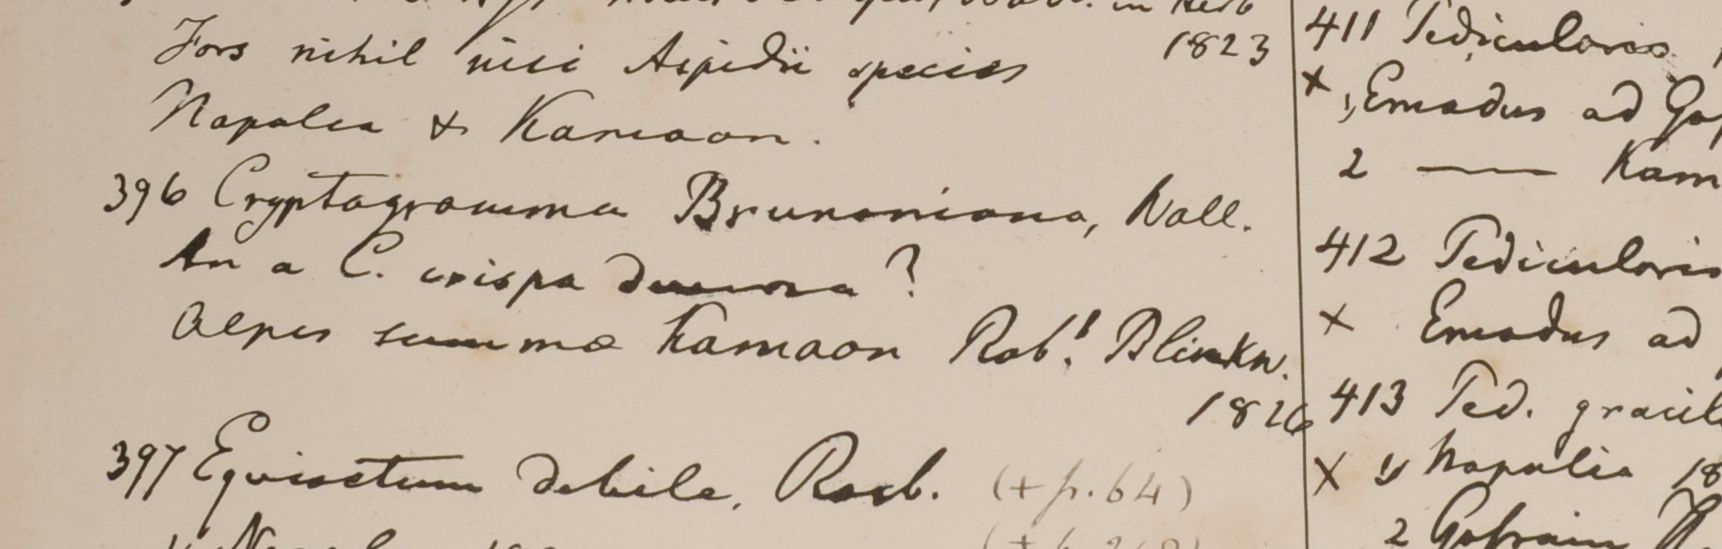 1823
Fors nihil nisi Aspidii species
Napalia & Kamaon.
396 Cryptogramma Brunoniana, Wall.
An a C. crispa diversa?
Alpes summae Kamaon Rob! Blinkw.
1826
397 Equisetum debile, Roxb. (+ p. 64)
411 Pedicularis
x 1, Emodus ad Gos
2 —— Kam
412 Pedicularis
x Emodus ad
413 Ped. gracil
x 1, Napalia 18
2 Gosain